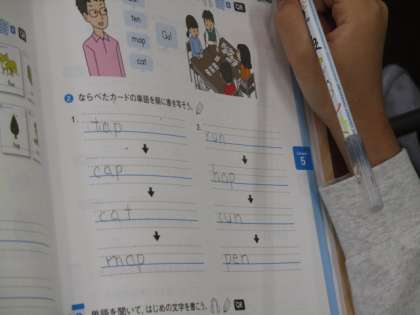 ten
map
cat
Go!
2 ならべたカードの単語を順に書き写そう。
1.
tap
cap
cat
map
2.
run
hop
run
pen
Lesson
5
単語を聞いて、はじめの文字を書こう。